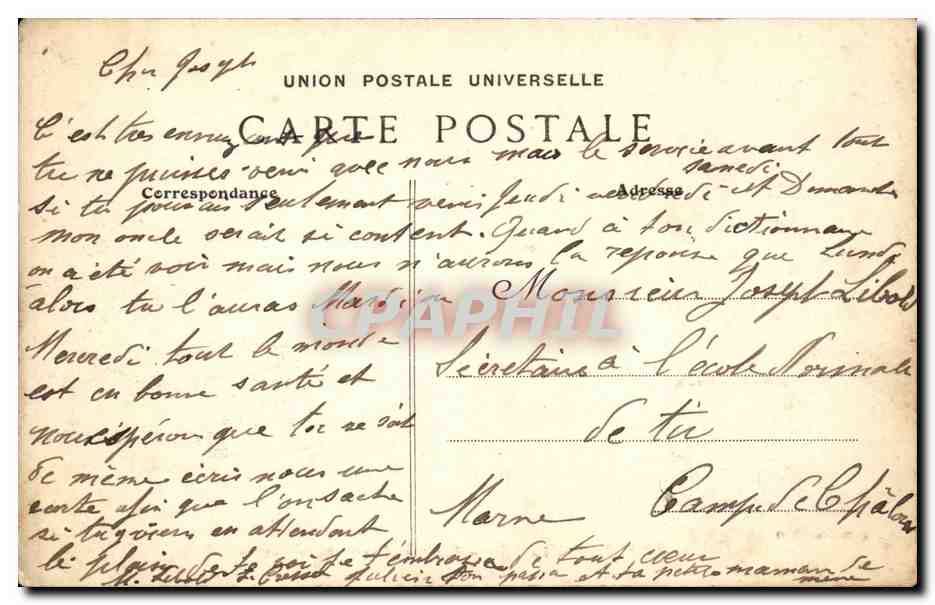 Cher Joseph
UNION POSTALE UNIVERSELLE
CARTE POSTALE
C'est tres ennuyant que
tu ne puisses venir avec nous mais le service avant tout
Correspondance
Adresse
samedi
si tu pouvais seulement venir Jeudi vendredi et Dimanche
mon oncle serait si content. Quand à ton dictionnaire
on a été voir mais nous n'aurons la reponse que Lundi
alors tu l'auras Mardi ou
Mercredi tout le monde
est en bonne santé et
nous espérons que toi ne soit
de même écris nous une
carte afin que l'on sache
si tu viens en attendant
le plaisir de te voir je t'embrasse de tout coeur
ton papa et ta petite maman de
même
Monsieur Joseph Libold
Sécretaire à l'école Normale
de tir
Camp de Châlons
Marne
CPAPHIL